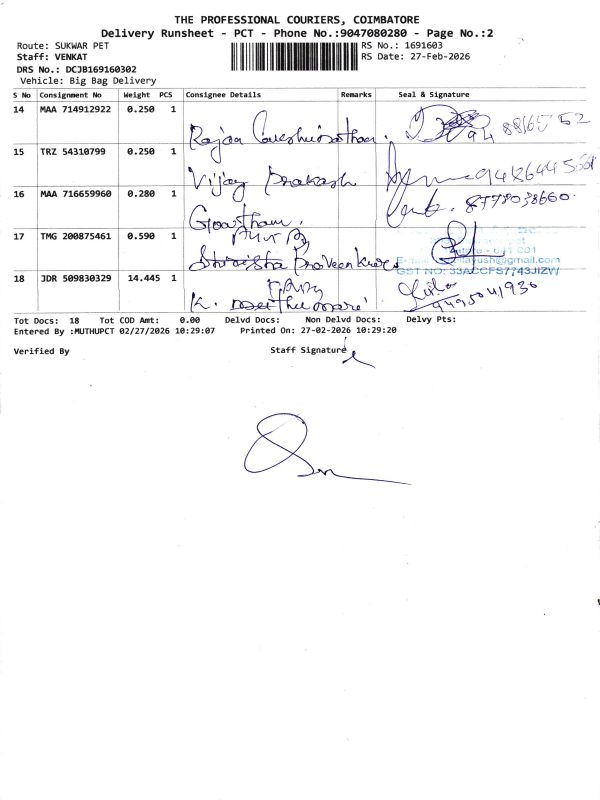 THE PROFESSIONAL COURIERS, COIMBATORE
Delivery Runsheet - PCT - Phone No.:9047080280 - Page No.:2
Route: SUKWAR PET
RS No.: 1691603
Staff: VENKAT
RS Date: 27-Feb-2026
DRS No.: DCJB169160302
Vehicle: Big Bag Delivery
S No Consignment No Weight PCS Consignee Details Remarks Seal & Signature
14 MAA 714912922 0.250 1
15 TRZ 54310799 0.250 1
Vijay Prakash
16 MAA 716659960 0.280 1
Gowtham. 8778038660
17 TMG 200875461 0.590 1
641 001
Praveen @gmail.com
GST NO: 33ACCFS7743J1ZW
18 JDR 509830329 14.445 1
K.
Tot Docs: 18 Tot COD Amt: 0.00 Delvd Docs: Non Delvd Docs: Delvy Pts:
Entered By :MUTHUPCT 02/27/2026 10:29:07 Printed On: 27-02-2026 10:29:20
Verified By Staff Signature